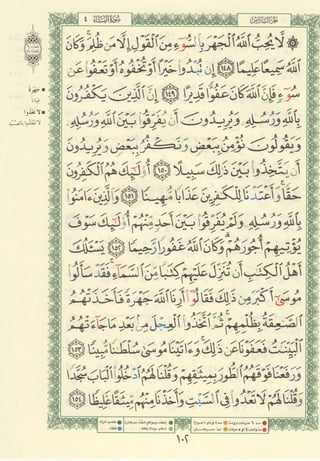 سُورَةُ النِّسَاءِ ٤
۞ لَّا يُحِبُّ اللَّهُ الْجَهْرَ بِالسُّوءِ مِنَ الْقَوْلِ إِلَّا مَن ظُلِمَ ۚ وَكَانَ
اللَّهُ سَمِيعًا عَلِيمًا ﴿١٤٨﴾ إِن تُبْدُوا خَيْرًا أَوْ تُخْفُوهُ أَوْ تَعْفُوا عَن
سُوءٍ فَإِنَّ اللَّهَ كَانَ عَفُوًّا قَدِيرًا ﴿١٤٩﴾ إِنَّ الَّذِينَ يَكْفُرُونَ
بِاللَّهِ وَرُسُلِهِ وَيُرِيدُونَ أَن يُفَرِّقُوا بَيْنَ اللَّهِ وَرُسُلِهِ
وَيَقُولُونَ نُؤْمِنُ بِبَعْضٍ وَنَكْفُرُ بِبَعْضٍ وَيُرِيدُونَ
أَن يَتَّخِذُوا بَيْنَ ذَٰلِكَ سَبِيلًا ﴿١٥٠﴾ أُولَٰئِكَ هُمُ الْكَافِرُونَ
حَقًّا ۚ وَأَعْتَدْنَا لِلْكَافِرِينَ عَذَابًا مُّهِينًا ﴿١٥١﴾ وَالَّذِينَ آمَنُوا
بِاللَّهِ وَرُسُلِهِ وَلَمْ يُفَرِّقُوا بَيْنَ أَحَدٍ مِّنْهُمْ أُولَٰئِكَ سَوْفَ
يُؤْتِيهِمْ أُجُورَهُمْ ۗ وَكَانَ اللَّهُ غَفُورًا رَّحِيمًا ﴿١٥٢﴾ يَسْأَلُكَ
أَهْلُ الْكِتَابِ أَن تُنَزِّلَ عَلَيْهِمْ كِتَابًا مِّنَ السَّمَاءِ ۚ فَقَدْ سَأَلُوا
مُوسَىٰ أَكْبَرَ مِن ذَٰلِكَ فَقَالُوا أَرِنَا اللَّهَ جَهْرَةً فَأَخَذَتْهُمُ
الصَّاعِقَةُ بِظُلْمِهِمْ ۚ ثُمَّ اتَّخَذُوا الْعِجْلَ مِن بَعْدِ مَا جَاءَتْهُمُ
الْبَيِّنَاتُ فَعَفَوْنَا عَن ذَٰلِكَ ۚ وَآتَيْنَا مُوسَىٰ سُلْطَانًا مُّبِينًا ﴿١٥٣﴾
وَرَفَعْنَا فَوْقَهُمُ الطُّورَ بِمِيثَاقِهِمْ وَقُلْنَا لَهُمُ ادْخُلُوا الْبَابَ سُجَّدًا
وَقُلْنَا لَهُمْ لَا تَعْدُوا فِي السَّبْتِ وَأَخَذْنَا مِنْهُم مِّيثَاقًا غَلِيظًا ﴿١٥٤﴾
جَهْرَةً
عياناً
لَا تَعْدُوا
١٠٢